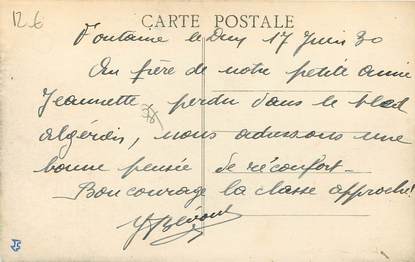 R.6
CARTE POSTALE
Fontaine le Duy 17 Juin 30
Au frère de notre petite amie
Jeannette, perdu dans le bled
algérien, nous adressons une
bonne pensée de réconfort_
Bon courage la classe approche!